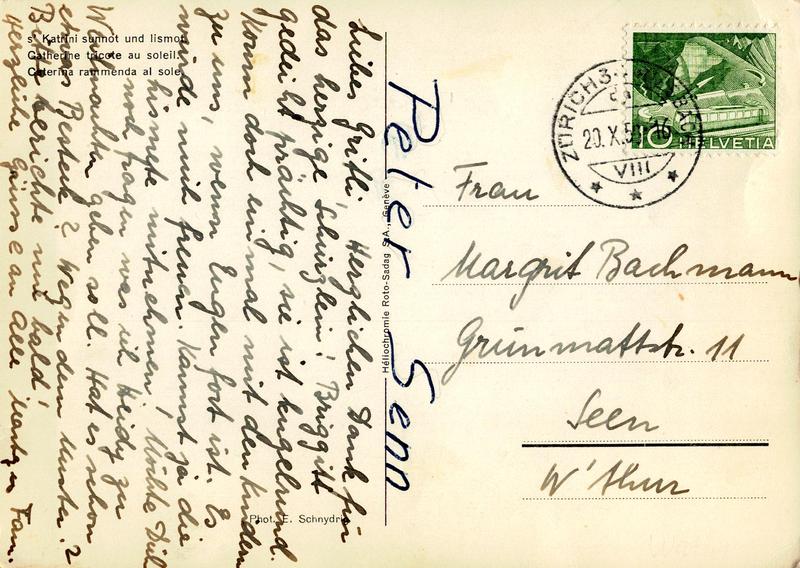 s' Katrini sünnot und lismot
Catherine tricote au soleil.
Caterina rammenda al sole
Liebes Gritli, Herzlichen Dank für
das herzige Schürzlein! Briggitt
gedeiht prächtig, sie ist kugelrund.
Komm doch einmal mit den Kindern
zu uns, wenn Eugen fort ist. Es
würde mich freuen. Kannst ja die
lismete mitnehmen! Möchte Dich
noch fragen was ich Heidy zu
Weihnachten geben soll. Hat es schon
etwas Besteck? Wegen dem Muster?
Bitte berichte mir bald!
Herzliche Grüsse an Alle Martiz u Fam.
Phot. E. Schnydrig
Héliochromie Roto-Sadag S.A., Genève
Peter Senn
ZÜRICH 3
20.X.5 -16
VIII
10 HELVETIA
Frau
Margrit Bachmann
Grünmattstr. 11
Seen
W'thur